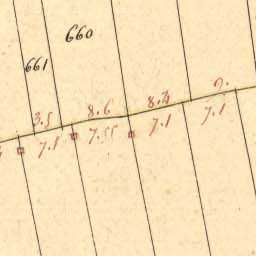 660
661
3.5 8.6 8.4 9.
7.1 7.55 7.1 7.1